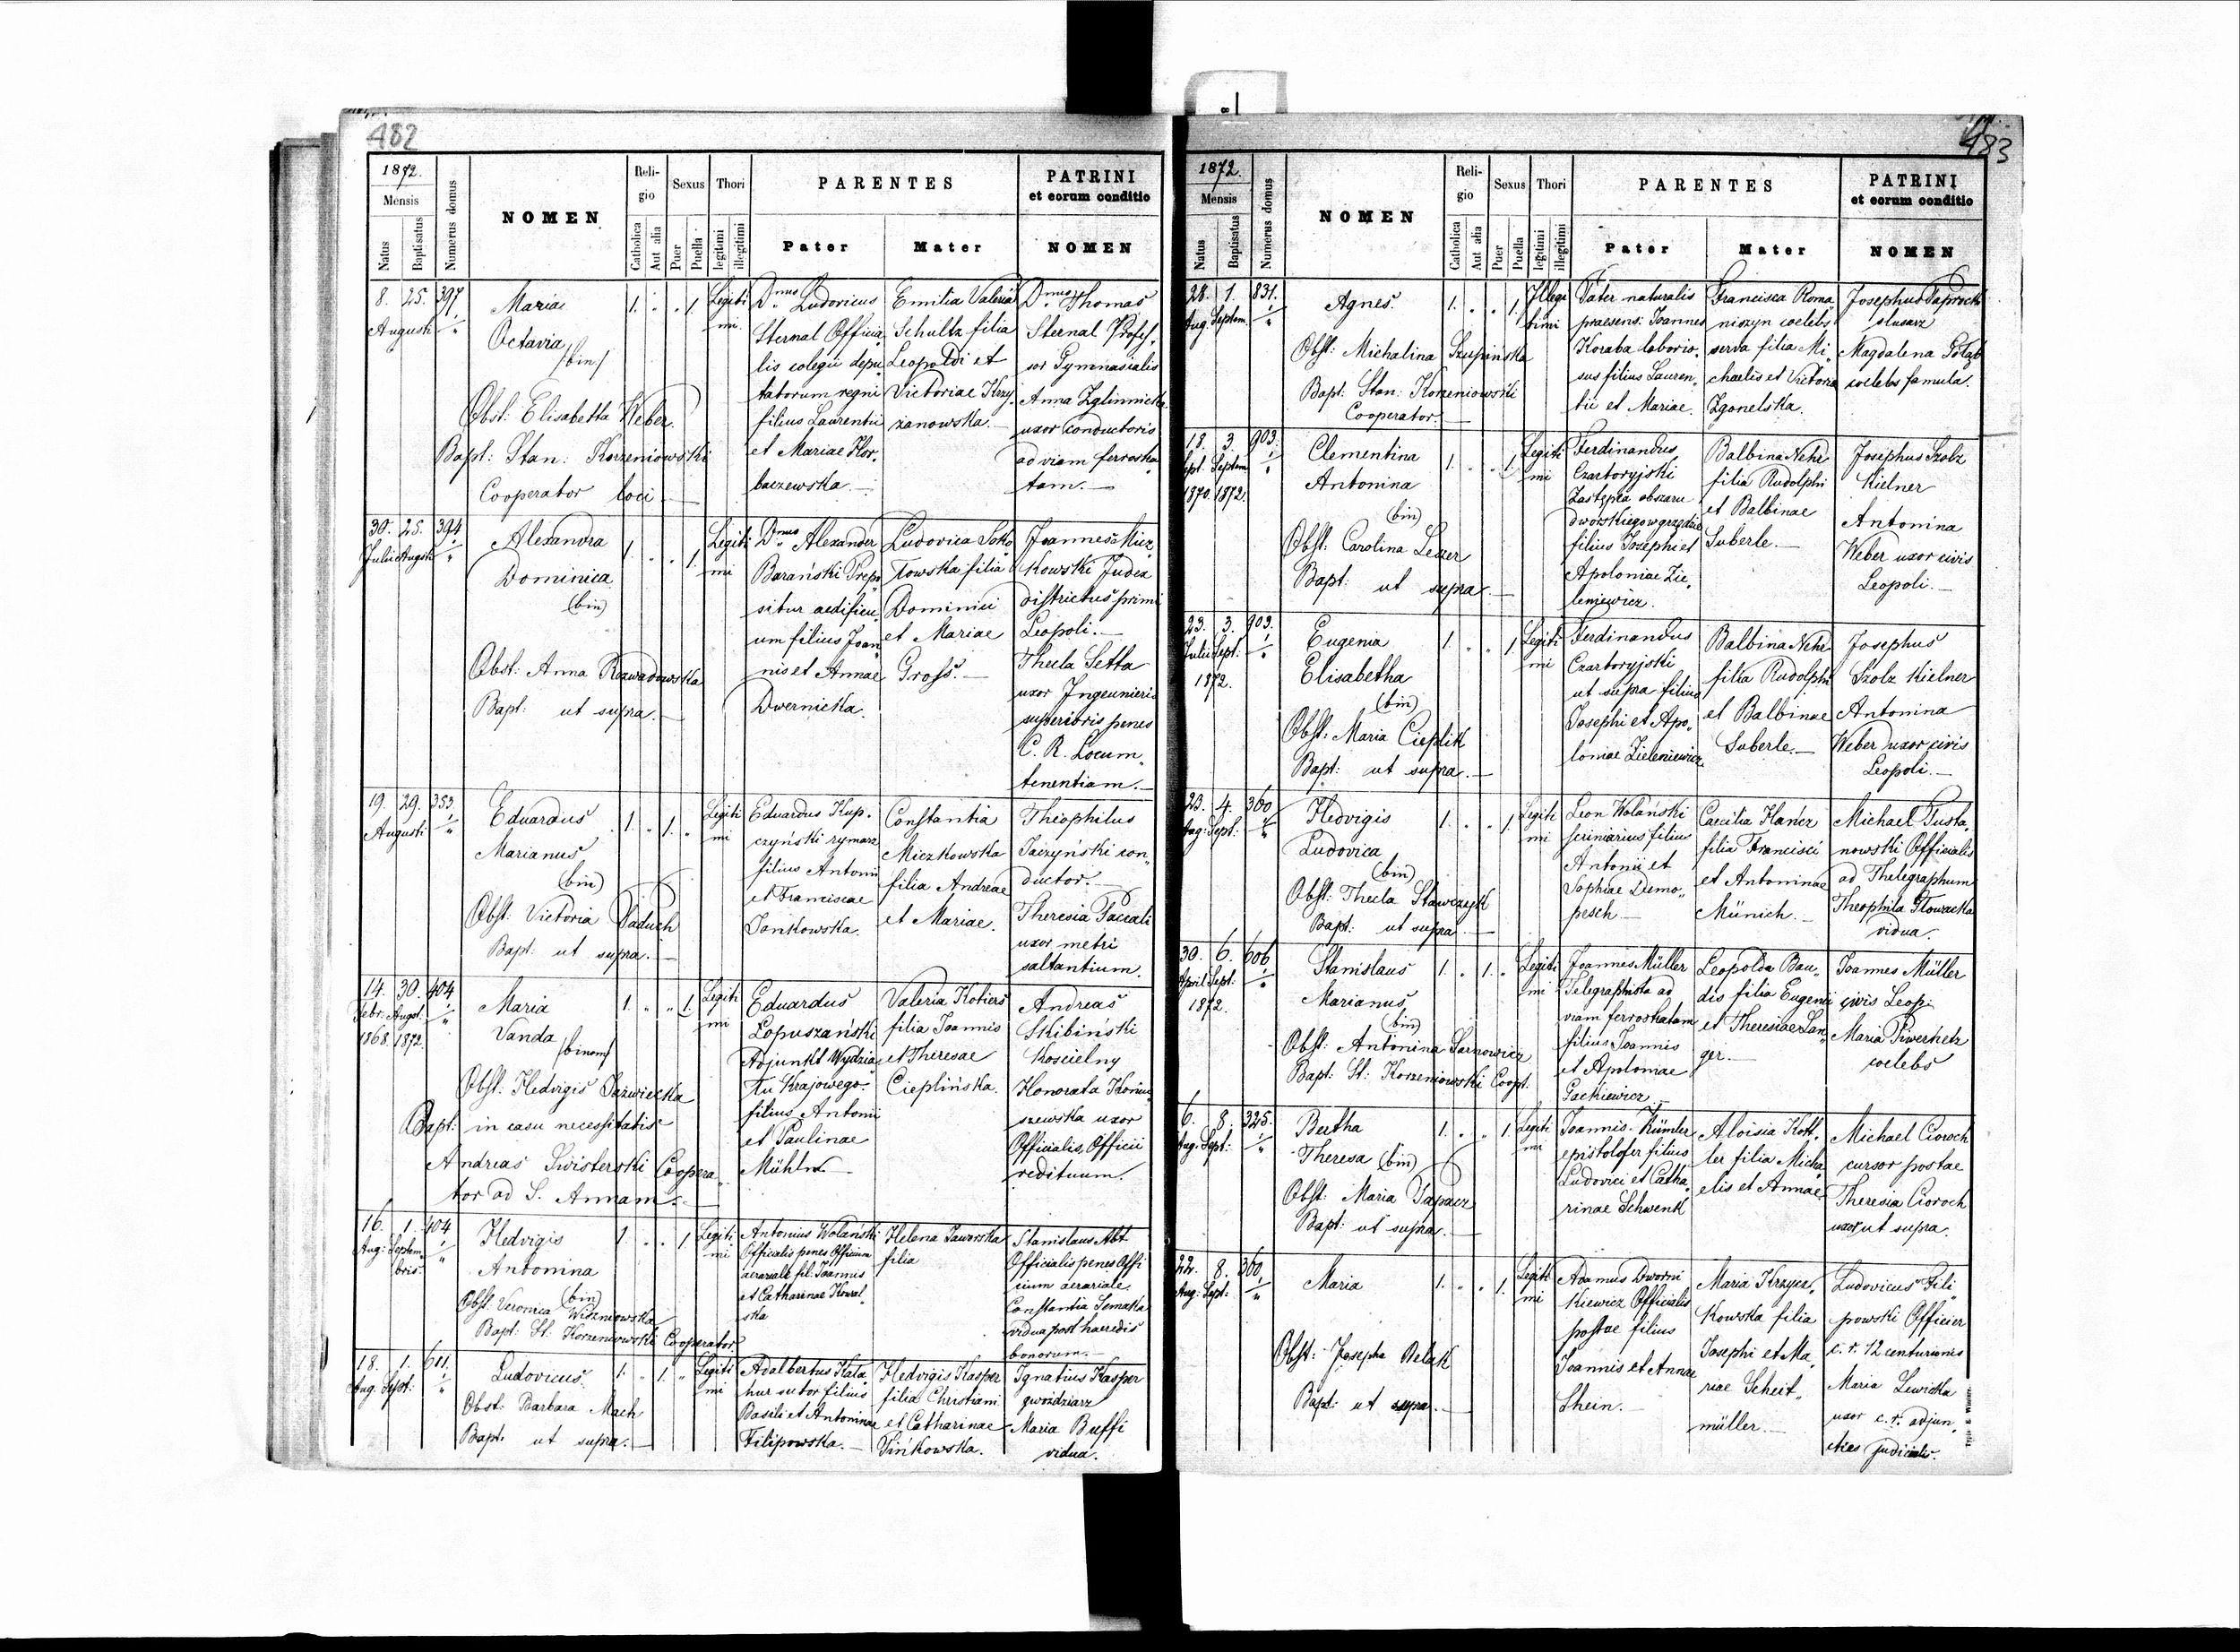 482
1872.
Mensis
Natus
Baptisatus
Numerus domus
NOMEN
Reli-
gio
Catholica
Aut alia
Sexus
Puer
Puella
Thori
legitimi
illegitimi
PARENTES
Pater
Mater
PATRINI
et eorum conditio
NOMEN
8. 25. 397/
Augusti
Maria
Octavia
/bin/
Obst: Elisabetta Weber.
Bapt: Stan: Korzeniowski
Cooperator loci
1. . . 1
Legiti
mi.
Dnus Ludovicus
Sternal Officia
lis colegii depu
tatorum regni
filius Laurentii
et Mariae Hor.
baczewska.
Emilia Valeria
Schultz filia
Leopoldi et
Victoriae Krzy.
zanowska.
Dnus Thomas
Sternal Profes.
sor Gymnasialis
Anna Zglinnicka
uxor conductoris
ad viam ferrostra
tam.
30. 25. 394
Julii Augusti
Alexandra
Dominica
(bin)
Obst: Anna Rozwadowska
Bapt: ut supra.
1. . . 1
Legiti
mi
Dnus Alexander
Barański
situr aedificu
um filius Joan
nis et Annae
Dwernicka.
Ludovica Soko
łowska filia
Dominici
et Mariae
Gross.
Joannes Micz,
kowski Judex
districtus primi
Leopoli.
Thecla Setta
uxor Ingeunieris
superioris penes
C. R. Locum,
tenentiam.
19. 29. 353.
Augusti
Eduardus
Marianus
(bin)
Obst: Victoria Paduch
Bapt: ut supra.
. 1. . 1. .
Legiti
mi
Eduardus Kup.
czyński rymarz
filius Antonii
et Franciscae
Jankowska.
Constantia
Miczkowska
filia Andreae
et Mariae.
Theophilus
Jaczyński con,
ductor.
Theresia Paccali
uxor metri
saltantium.
14. 30. 404
Febr: Augst.
1868. 1872.
Maria
Vanda
/binom/
Obst: Hedvigis Sazwiecka
Bapt: in casu necessitatis
Andreas Swisterski Coopera,
tor ad S. Annam.
1. . . 1.
Legiti
mi
Eduardus
Łopuszański
Adjunkt Wydzia
łu krajowego.
filius Antonii
et Paulinae
Mühln
Valeria Kotiers
filia Joannis
et Theresae
Cieplińska.
Andreas
Skibiński
Koscielny
Honorata Koniu
szewska uxor
Officialis, Officii
redituum.
16. 1. 404
Aug: Septem,
bris.
Hedvigis
Antonina
(bin)
Obst: Veronica Wiszniowska
Bapt: St: Korzeniowski Cooperator.
1 . . 1
Legiti
mi
Antonius Wolański
Officialis penes Officium
aerariale fil: Joannis
et Catharinae Kowal
ska
Helena Jaworska
filia
Stanislaus Abt
Officialis penes Offi
cium aerariale
Constantia Semaka
vidua post haeredis
bonorum.
18. 1. 601.
Aug: Sept:
Ludovicus.
Obst: Barbara Mach
Bapt: ut supra.
1. . 1. .
Legiti
mi
Adalbertus Kała
hur sutor filius
Basili et Antoninae
Filipowska.
Hedvigis Kasper
filia Christiani
et Catharinae
Sińkowska.
Ignatius Kasper
gwoździarz
Maria Buffi
vidua.
483
1872.
Mensis
Natus
Baptisatus
Numerus domus
NOMEN
Reli-
gio
Catholica
Aut alia
Sexus
Puer
Puella
Thori
legitimi
illegitimi
PARENTES
Pater
Mater
PATRINI
et eorum conditio
NOMEN
28. 1. 831.
Aug. Septem.
Agnes.
Obst: Michalina Szupińska
Bapt: Stan: Korzeniowski
Cooperator.
1. . . 1.
Illegi
timi
Pater naturalis
praesens: Joannes
Koraba laborio.
sus filius Lauren,
tii et Mariae.
Francisca Roma
niszyn coelebs
serva filia Mi,
chaelis et Victoria
Zgonelska.
Josephus Paprocki
slusarz
Magdalena Gołąb
coelebs famula.
18. 3. 903.
Sept. Septem
1870. 1872.
Clementina
Antonina
(bin)
Obst: Carolina Leszer
Bapt: ut supra.
1. . . 1.
Legiti
mi
Ferdinandus
Czartoryjski
Zastępca obszaru
dworskiego w grzędzie
filius Josephi et
Apoloniae Zie,
leniewicz.
Balbina Nehr
filia Rudolphi
et Balbinae
Suberle.
Josephus Szolz
Kielner
Antonina
Weber uxor civis
Leopoli.
23. 3. 903.
Julii Sept:
1872.
Eugenia
Elisabetha
(bin)
Obst: Maria Cieplik
Bapt: ut supra.
1. . . 1.
Legiti
mi
Ferdinandus
Czartoryjski
ut supra filius
Josephi et Apo,
loniae Zieleniewicz
Balbina Nehr
filia Rudolphi
et Balbinae
Suberle.
Josephus
Szolz Kielner
Antonina
Weber uxor civis
Leopoli.
23. 4. 360
Aug: Sept:
Hedvigis
Ludovica
(bin)
Obst: Thecla Stawczyk
Bapt: ut supra
1. . . 1.
Legiti
mi
Leon Wolański
scriniarius filius
Antonii et
Sophiae Demo,
pesch
Caecilia Hańcz
filia Francisci
et Antoninae
Münich.
Michael Tusta,
nowski Officialis
ad Thelegraphum
Theophila Głowacka
vidua.
30. 6. 606.
April Sept:
1872.
Stanislaus
Marianus
(bin)
Obst: Antonina Sarnowicz
Bapt: St: Korzeniowski Coopt.
1. . 1. .
Legiti
mi
Joannes Müller
Telegraphista ad
viam ferrostratam
filius Joannis
et Apoloniae
Gackiewicz.
Leopolda Bau,
dis filia Eugenii
et Theresiae Lan,
ger.
Joannes Müller
civis Leop:
Maria Piwerhetz
coelebs
6. 8. 325.
Aug: Sept:
Bertha
Theresa (bin)
Obst: Maria Papacz
Bapt: ut supra.
1. . . 1.
Legiti
mi
Joannis Kümler
epistolofer filius
Ludovici et Catha,
rinae Schwenk
Aloisia Kott,
ler filia Micha
elis et Annae
Michael Cioroch
cursor postae
Theresia Cioroch
uxor ut supra.
22. 8. 360
Aug: Sept:
Maria
Obst: Josepha Belak
Bapt: ut supra.
1. . . 1.
Legiti
mi
Adamus Dworni
kiewicz Officialis
postae filius
Joannis et Annae
Shein.
Maria Krzycz,
kowska filia
Josephi et Ma,
riae Scheit,
müller.
Ludovicus Fili
powski Officier
c. r. 12 centurionis
Maria Lewicka
uxor c. r. adjun,
cties judicialis.